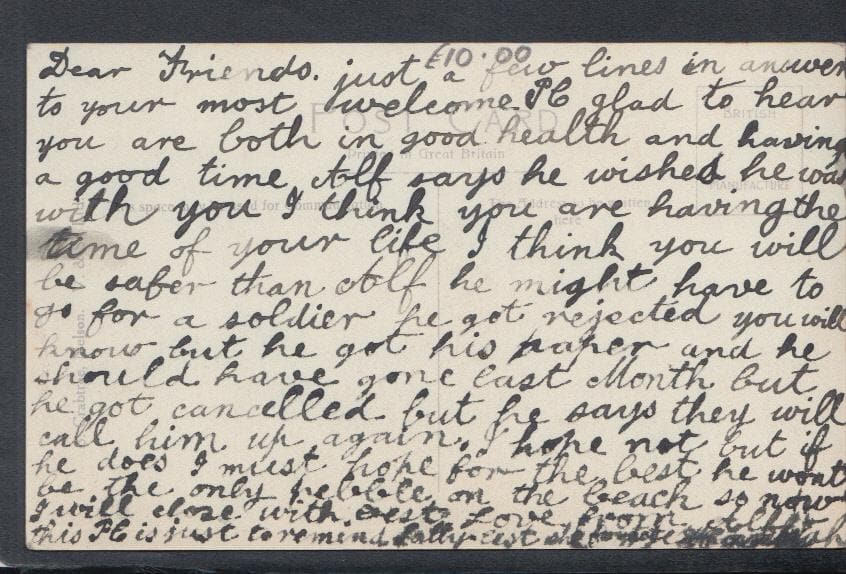 £10.00
Dear Friends. just a few lines in answer
to your most welcome PC glad to hear
you are both in good health and having
a good time Alf says he wished he was
with you I think you are having the
time of your life I think you will
be safer than Alf he might have to
go for a soldier he got rejected you will
know but he got his paper and he
should have gone last Month but
he got cancelled but he says they will
call him up again. I hope not but if
he does I must hope for the best he wont
be the only pebble on the beach so now
I will close with best Love from
this PC is just to remind
POST CARD
BRITISH
MANUFACTURE
Printed in Great Britain